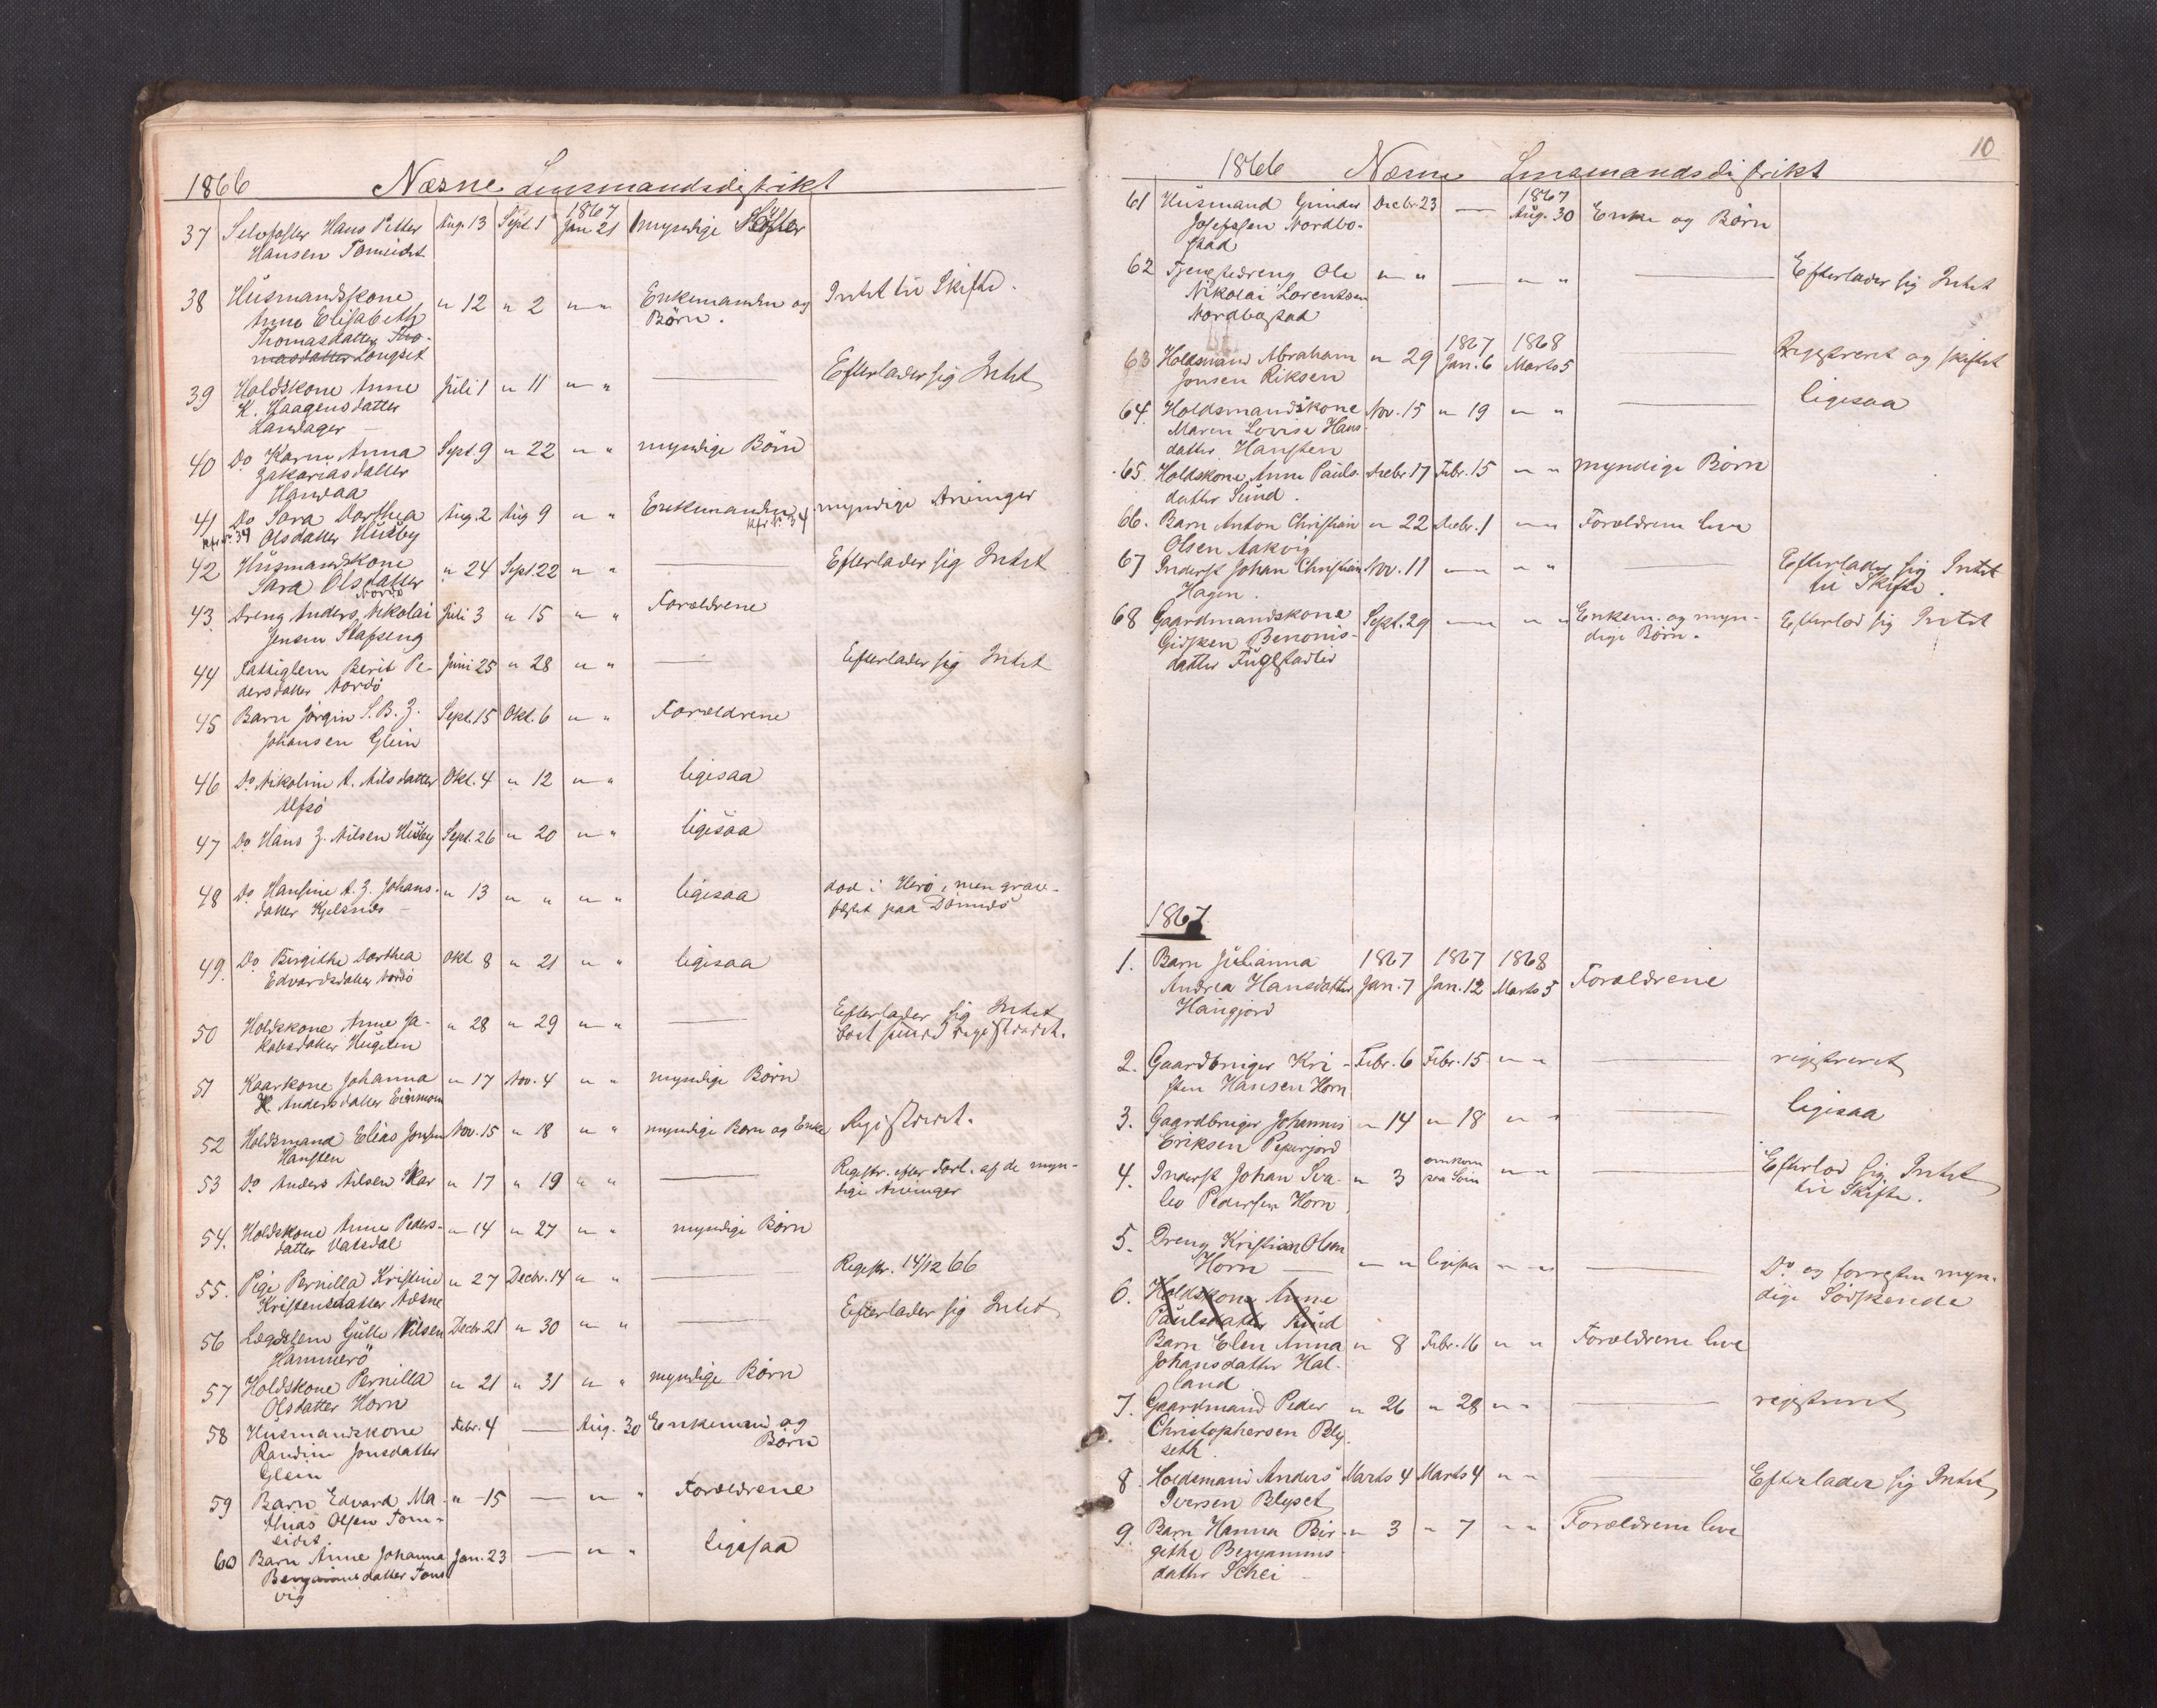 1866 Næsne Lensmandsdistrikt
37 Selvfoster Hans Petter Aug. 13 Sept. 1 1867 Jan 21 myndige Söster
Hansen Tomeidet
38 Husmandskone " 12 " 2 " " Enkemanden og Intet til Skifte.
Anne Elisabeth Börn.
Thomasdatter Tho-
masdatter Longset
39 Holdskone Anne Juli 1 " 11 " " — Efterlader sig Intet
K. Haagensdatter
Landager
40 Do Karen Anna Sept. 9 " 22 " " myndige Börn
Zakariasdatter
Handaa
41 Do Sara Dorthea Aug. 2 Aug 9 " " Enkemanden myndige Arvinger
Kfr No 34 Olsdatter Husby Kfr No 34
42 Husmandskone " 24 Sept. 22 " " — Efterlader sig Intet
Sara Olsdatter
Nordö
43 Dreng Anders Nikolai Juli 3 " 15 " " Forældrene
Jensen Stafseng
44 Fattiglem Berit Pe- Juni 25 " 28 " " — Efterlader sig Intet
dersdatter Nordö
45 Barn Jörgin S. B. Z. Sept. 15 Okt. 6 " " Forældrene
Johansen Glein
46 Do Nikoline A. Nilsdatter Okt. 4 " 12 " " ligesaa
Alfsö
47 Do Hans Z. Nilsen Husby Sept. 26 " 20 " " ligesaa
48 Do Hansine A. Z. Johans- " 13 " " " " ligesaa död i Herö, men grav-
datter Kjelsnes fæstet paa Dönnes
49. Do Birgithe Dorthea Okt 8 " 21 " " ligesaa
Edvardsdatter Nordö
50 Holdskone Anne Ja- " 28 " 29 " " — Efterlader sig Intet
kobsdatter Hugelen
51 Kaarkone Johanna " 17 Nov. 4 " " myndige Börn
K. Andersdatter
52 Holdsmand Elias Jonsen Nov. 15 " 18 " " myndige Børn og Enke Registreret.
Hansten
53 Do Anders Nilsen Skar " 17 " 19 " " — Registr. efter Forl. af de myn-
dige Arvinger
54. Holdskone Anne Peders- " 14 " 27 " " myndige Börn
datter Vatsdal
55. Pige Pernilla Kristine " 27 Decbr. 14 " " — Registr. 14/12 66
Kristensdatter Næsne
56 Lægdslem Gulle Nilsen Decbr. 21 " 30 " " — Efterlader sig Intet
Hammerö
57 Holdskone Pernilla " 21 " 31 " " myndige Börn
Olsdatter Horn
58 Husmandskone Febr. 4 — Aug. 30 Enkemand og
Randine Jonsdatter Börn
Glein
59 Barn Edvard Ma- " 15 — " " Forældrene
thias Olsen Tom-
eidet
60 Barn Anne Johanna Jan. 23 — " " ligesaa
Benjaminsdatter Tons
vig
10
1866 Næsne Lensmandsdistrikt
61 Husmand Gunder Decbr. 23 — 1867 Aug. 30 Enke og Börn
Josefssen Nordbo-
stad
62 Tjenestedreng Ole " " — " " — Efterlader sig Intet
Nikolai Lorentsen
Nordbostad
63 Holdsmand Abraham " 29 1867 Jan. 6 1868 Marts 5 — Registreret og skiftet
Jonsen Riksen
64. Holdsmandskone Nov. 15 " 19 " " — ligesaa
Maren Lovise Hans-
datter Hansten
65. Holdskone Anne Pauls- Decbr. 17 Febr. 15 " " myndige Börn
datter Sund.
66. Barn Anton Christian " 22 Decbr. 1 " " Forældrene leve
Olsen Aakvig
67 Inderst Johan Christian Nov. 11 " " " " — Efterlader sig Intet
Hagen. til Skifte.
68 Gaardmandskone Sept. 29 " " " " Enkem. og myn- Efterlod sig Intet
Gidsken Benonis- dige Börn.
datter Fuglstadlid
1867.
1. Barn Julianna 1867 1867 1868
Andrea Hansdatter Jan. 7 Jan. 12 Marts 5 Forældrene
Haugjord
2. Gaardbruger Kri- Febr. 6 Febr. 15 " " — registreret
sten Hansen Horn
3. Gaardbruger Johannes " 14 " 18 " " — ligesaa
Eriksen Pepperjord
4. Inderst Johan " 3 omkom paa Söen " " — Efterlod sig Intet
Pedersen Horn. til Skifte.
5. Dreng Kristian Olsen
Horn — " " ligesaa " " — Do og forresten myn-
dige Södskende
6. Holdskone Anne
Paulsdatter Sund
Barn Elen Anna " 8 Febr. 16 " " Forældrene leve
Johansdatter Hal-
land
7. Gaardmand Peder " 26 " 28 " " — registreret
Christophersen Bly-
seth
8. Holdsmand Anders Marts 4 Marts 4 " " Efterlader sig Intet
Iversen Blyset
9. Barn Hanna Bir- " 3 " 7 " " Forældrene leve
githe Benjamins-
datter Schei